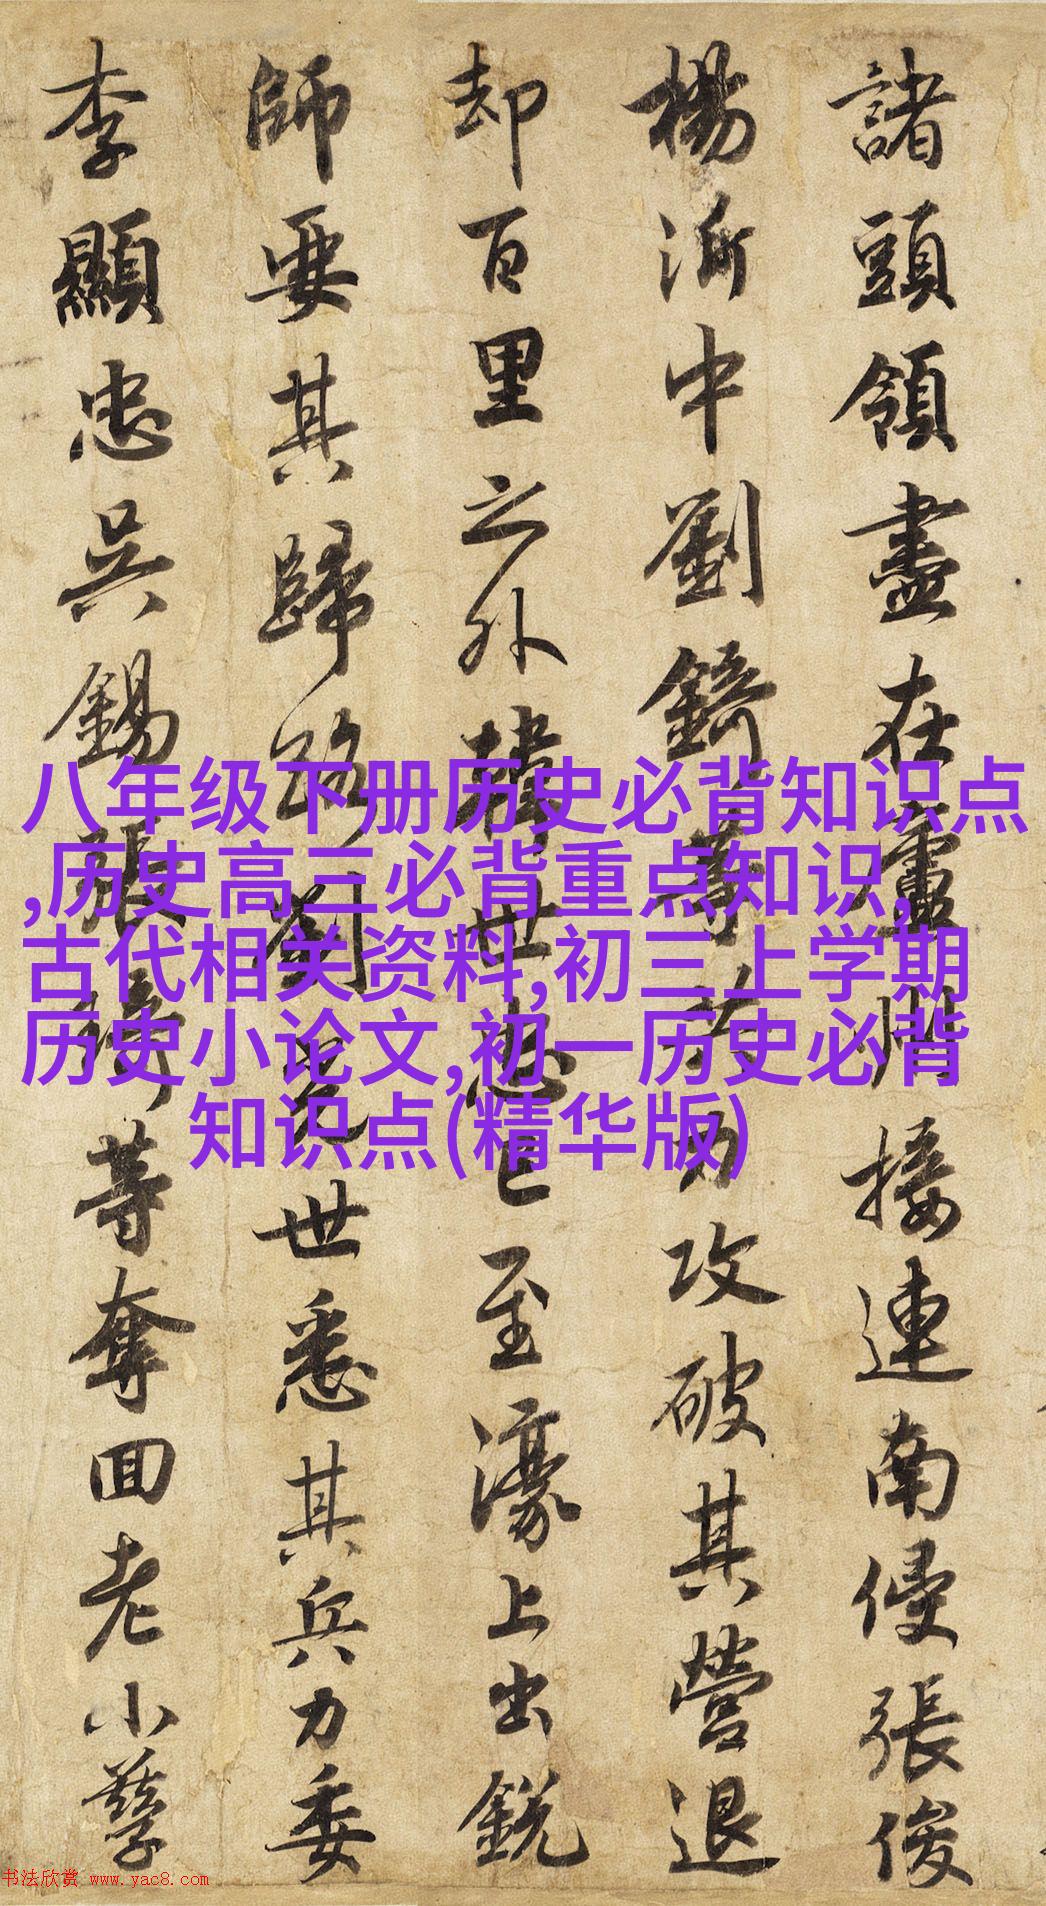 諸頭領盡在廬州接連南侵張俊
楊沂中劉錡等共力攻破其營退
却百里之外韓世忠已至濠上出銳
師要其歸路劉光世悉其兵力委
李顯忠吳錫張琦等奪回老小孳
八年级下册历史必背知识点
,历史高三必背重点知识,
古代相关资料,初三上学期
历史小论文,初一历史必背
知识点(精华版)
书法欣赏 www.yac8.com